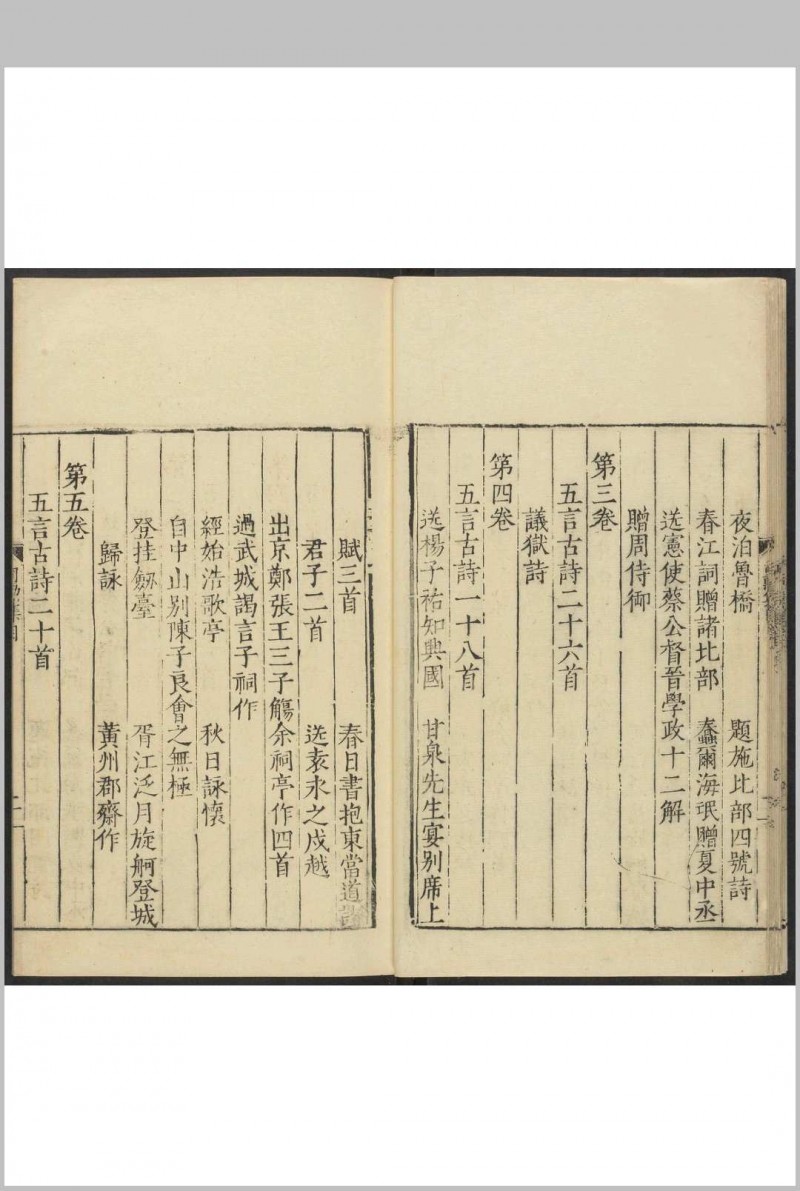 夜泊魯橋　題施比部四號詩
春江詞贈諸比部　蠢爾海氓贈夏中丞
送憲使蔡公督晉學政十二解
贈周侍御
第三卷
五言古詩二十六首
議獄詩
第四卷
五言古詩一十八首
送楊子祐知興國　甘泉先生宴别席上
賦三首　春日書抱柬當道諸
君子二首　送袁永之戍越
出京鄭張王三子觴余祠亭作四首
過武城謁言子祠作
經始浩歌亭　秋日詠懷
自中山别陳子良會之無極
登挂劔臺　胥江泛月旋舸登城
歸詠　黃州郡齋作
第五卷
五言古詩二十首